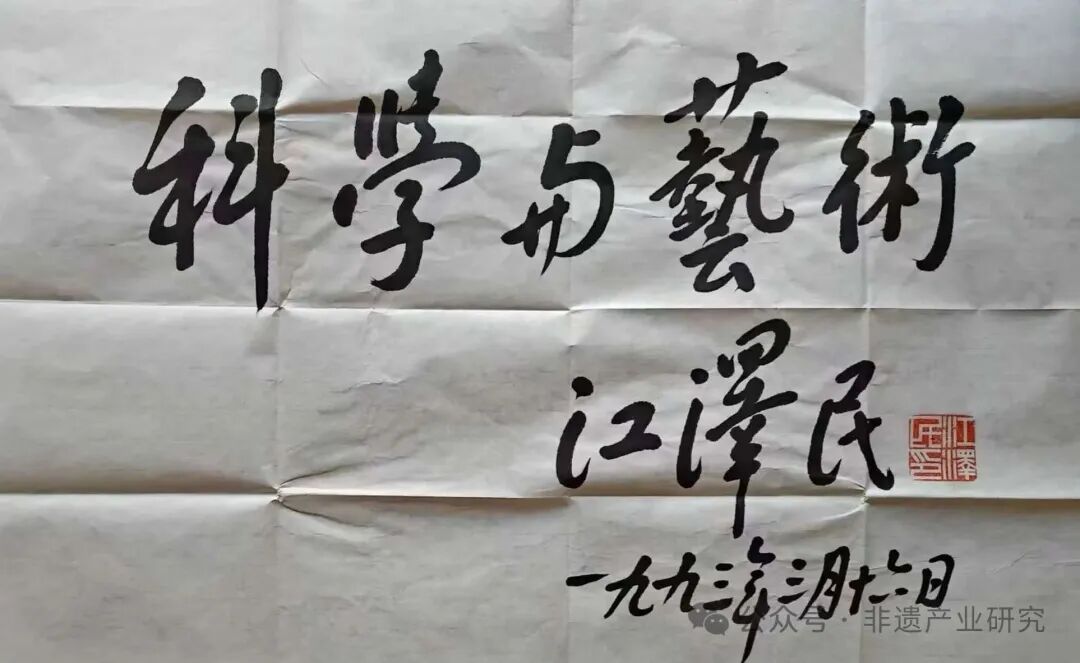 科學与藝術
江澤民
江澤民印
一九九三年三月十六日
公众号·非遗产业研究